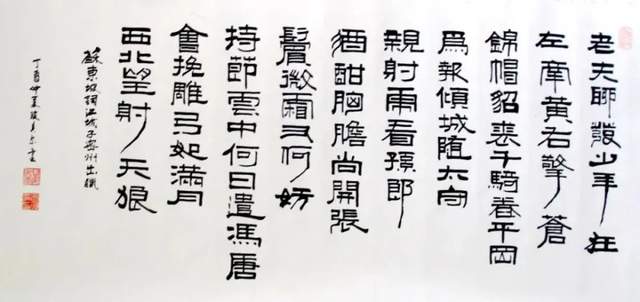 老夫聊發少年狂
左牽黃右擎蒼
錦帽貂裘千騎卷平岡
爲報傾城隨太守
親射虎看孫郎
酒酣胸膽尚開張
鬢微霜又何妨
持節雲中何日遣馮唐
會挽雕弓如滿月
西北望射天狼
蘇東坡詞江城子密州出獵
丁酉仲夏